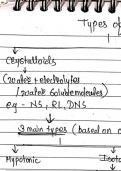 Types of
Crystalloids
(water + electrolytes
/water soluble molecules)
eg - NS, RL, DNS
3 main types (based on
Hypotonic Isoto